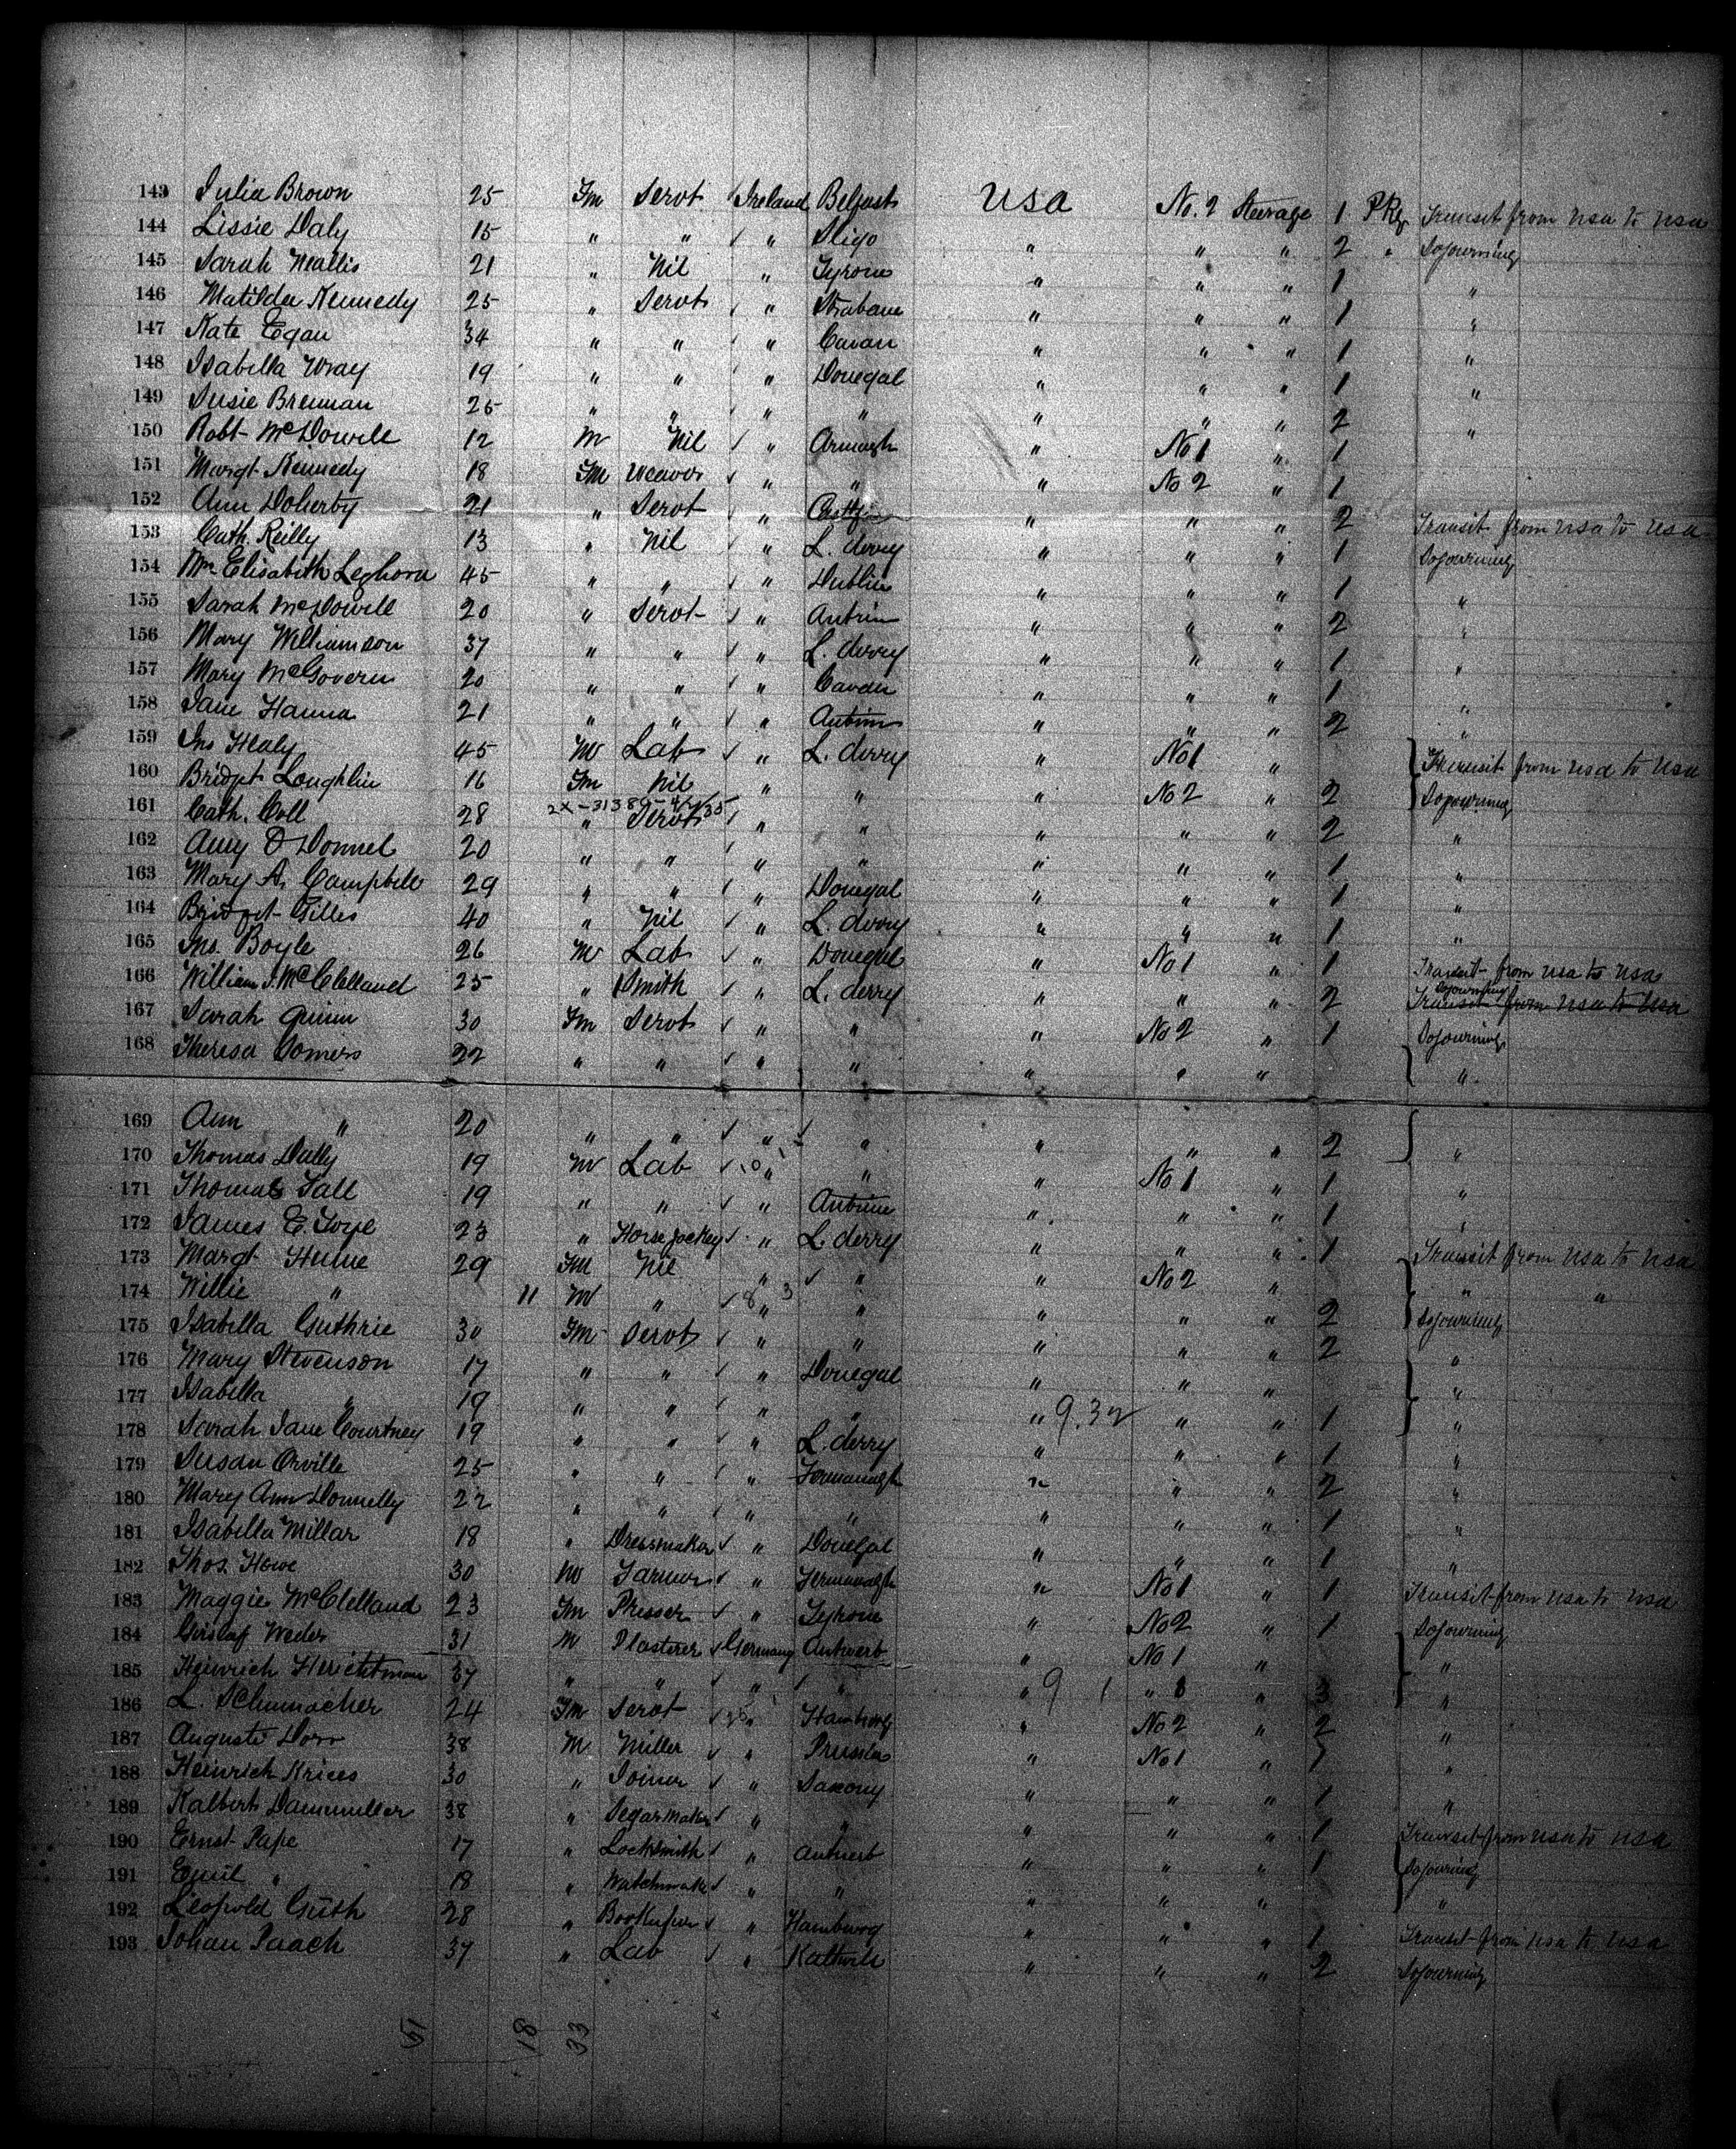 143 Julia Brown 25 Fm Servt ✓ Ireland Belfast USA No. 2 Steerage 1 Pkg Transit from USA to USA
144 Lissie Daly 15 " " ✓ " Sligo " " " 2 " Sojourning
145 Sarah Wallis 21 " Nil " Tyrone " " " 1 "
146 Matilda Kennedy 25 " Servt ✓ " Strabane " " " 1 "
147 Kate Egan 34 " " ✓ " Cavan " " " 1 "
148 Isabella Wray 19 " " ✓ " Donegal " " " 1 "
149 Susie Brennan 25 " " ✓ " " " " " 2 "
150 Robt McDowell 12 M Nil ✓ " Armagh " No 1 " 1
151 Margt Kennedy 18 Fm Weaver ✓ " " " No 2 " 1
152 Ann Doherty 21 " Servt ✓ " " " " 2 Transit from USA to USA
153 Cath. Reilly 13 " Nil ✓ " L. derry " " " 1 Sojourning
154 Mrs Elisabith Leghorn 45 " " ✓ " Dublin " " " 1 "
155 Sarah McDowell 20 " Servt ✓ " Antrim " " " 2 "
156 Mary Williamson 37 " " ✓ " L. derry " " " 1 "
157 Mary McGovern 20 " " ✓ " Cavan " " " 1 "
158 Jane Hanna 21 " " ✓ " Antrim " " " 2 "
159 Jno Healy 45 M Lab ✓ " L. derry " No 1 " Transit from USA to USA
160 Bridget Loughlin 16 Fm Nil " " " No 2 " 2 Sojourning
161 Cath. Coll 28 " Servt ✓ " " " " " 2 "
162 Amy O Donnel 20 " " ✓ " " " " " 1 "
163 Mary A. Campbell 29 " " ✓ " Donegal " " " 1 "
164 Bridget Gilles 40 " Nil ✓ " L. derry " " " 1 "
165 Jno. Boyle 26 M Lab ✓ " Donegal " No 1 " 1 Transit from USA to USA
166 William J. McClelland 25 " Smith ✓ " L. derry " " " 2 Sojourning Transit from USA to USA
167 Sarah Quinn 30 Fm Servt ✓ " " " No 2 " 1 Sojourning
168 Theresa Somers 22 " " ✓ " " " " " "
169 Ann " 20 " " ✓ " " " " " 2 "
170 Thomas Dally 19 M Lab ✓ " " " No 1 " 1 "
171 Thomas Fall 19 " " ✓ " Antrim " " " 1 "
172 James E. Foye 23 " Horse jockey ✓ " L. derry " " " 1 Transit from USA to USA
173 Margt Hume 29 Fm Nil " ✓ " " No 2 " " "
174 Willie " 11 M " ✓ " " " " " 2 Sojourning
175 Isabella Guthrie 30 Fm Servt ✓ " " " " " 2 "
176 Mary Stevenson 17 " " ✓ " Donegal " " " "
177 Isabella " 19 " " ✓ " " " 9.32 " " 1 "
178 Sarah Jane Courtney 19 " " ✓ " L. derry " " " 1 "
179 Susan Orville 25 " " ✓ " Fermanagh " " " 2 "
180 Mary Ann Donnelly 22 " " ✓ " " " " " 1 "
181 Isabella Millar 18 " Dressmaker ✓ " Donegal " " " 1 "
182 Thos. Howe 30 M Farmer ✓ " Fermanagh " No 1 " 1 Transit from USA to USA
183 Maggie McClelland 23 Fm Presser ✓ " Tyrone " No 2 " 1 Sojourning
184 Weder 31 M Plasterer ✓ Germany Antwerb " No 1 " "
185 Heinrich 37 " " ✓ " " " 9 1 " " 3 "
186 L. Schumacher 24 Fm Servt ✓ " Hamburg " No 2 " 2 "
187 Auguste Dorr 38 M Miller ✓ " Prussia " No 1 " 1 "
188 Heinrich Kriees 30 " Joiner ✓ " Saxony " " " 1 "
189 Kalbert Dammuller 38 " Segar Maker ✓ " " " " " 1 Transit from USA to USA
190 Ernst Pape 17 " Locksmith ✓ " Antwerb " " " 1 Sojourning
191 Emil " 18 " Watchmak ✓ " " " " " "
192 Leopold Guth 28 " Bookkeper ✓ " Hamburg " " " 1 Transit from USA to USA
193 Johan Paach 37 " Lab ✓ " " " " 2 Sojourning
51 18 33